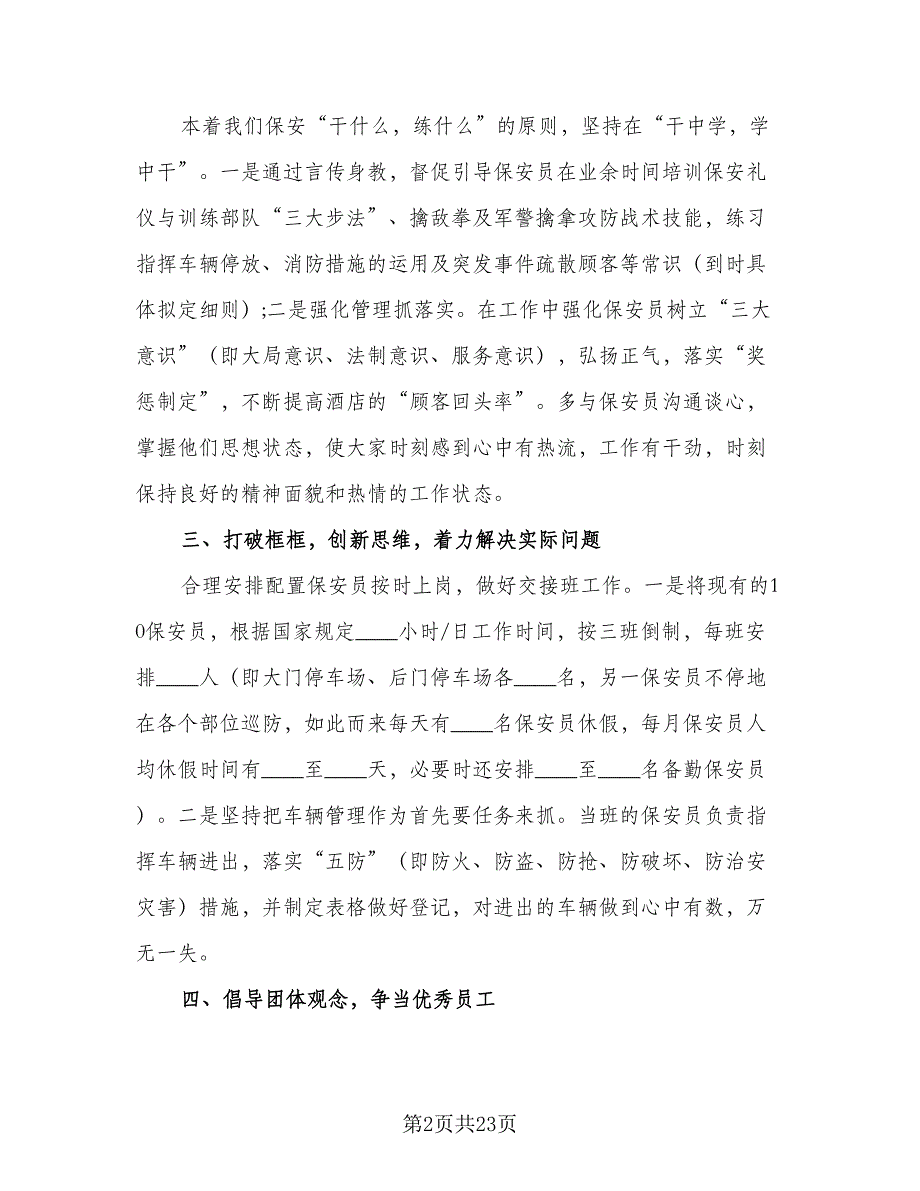 本着我们保安“干什么，练什么”的原则，坚持在“干中学，学
中干”。一是通过言传身教，督促引导保安员在业余时间培训保安礼
仪与训练部队“三大步法”、擒敌拳及军警擒拿攻防战术技能，练习
指挥车辆停放、消防措施的运用及突发事件疏散顾客等常识（到时具
体拟定细则）;二是强化管理抓落实。在工作中强化保安员树立“三大
意识”（即大局意识、法制意识、服务意识），弘扬正气，落实“奖
惩制定”，不断提高酒店的“顾客回头率”。多与保安员沟通谈心，
掌握他们思想状态，使大家时刻感到心中有热流，工作有干劲，时刻
保持良好的精神面貌和热情的工作状态。
三、打破框框，创新思维，着力解决实际问题
合理安排配置保安员按时上岗，做好交接班工作。一是将现有的1
0保安员，根据国家规定____小时/日工作时间，按三班倒制，每班安
排____人（即大门停车场、后门停车场各____名，另一保安员不停地
在各个部位巡防，如此而来每天有____名保安员休假，每月保安员人
均休假时间有____至____天，必要时还安排____至____名备勤保安员
）。二是坚持把车辆管理作为首先要任务来抓。当班的保安员负责指
挥车辆进出，落实“五防”（即防火、防盗、防抢、防破坏、防治安
灾害）措施，并制定表格做好登记，对进出的车辆做到心中有数，万
无一失。
四、倡导团体观念，争当优秀员工
第2页共23页